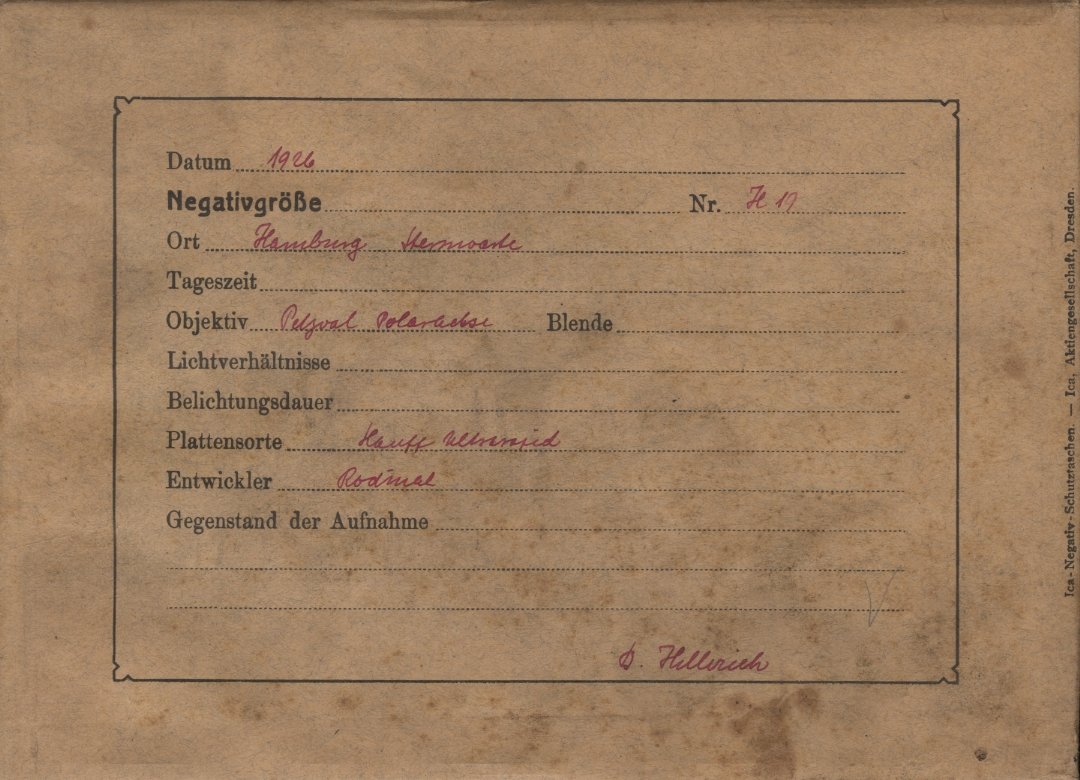 Datum 1926
Negativgröße Nr. H 19
Ort Hamburg Sternwarte
Tageszeit
Objektiv Petzval Polarachse Blende
Lichtverhältnisse
Belichtungsdauer
Plattensorte Hauff Ultrarapid
Entwickler Rodinal
Gegenstand der Aufnahme
D. Hellerich
Ica-Negativ-Schutztaschen. — Ica, Aktiengesellschaft, Dresden.